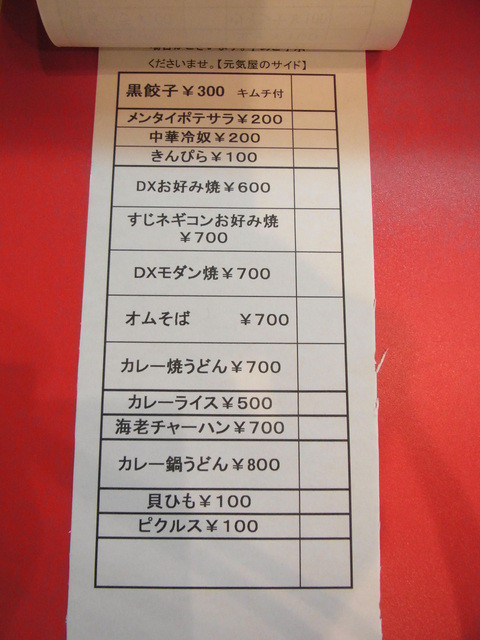 くださいませ。【元気屋のサイド】
黒餃子￥300 キムチ付
メンタイポテサラ￥200
中華冷奴￥200
きんぴら￥100
DXお好み焼￥600
すじネギコンお好み焼
￥700
DXモダン焼￥700
オムそば ￥700
カレー焼うどん￥700
カレーライス￥500
海老チャーハン￥700
カレー鍋うどん￥800
貝ひも￥100
ピクルス￥100